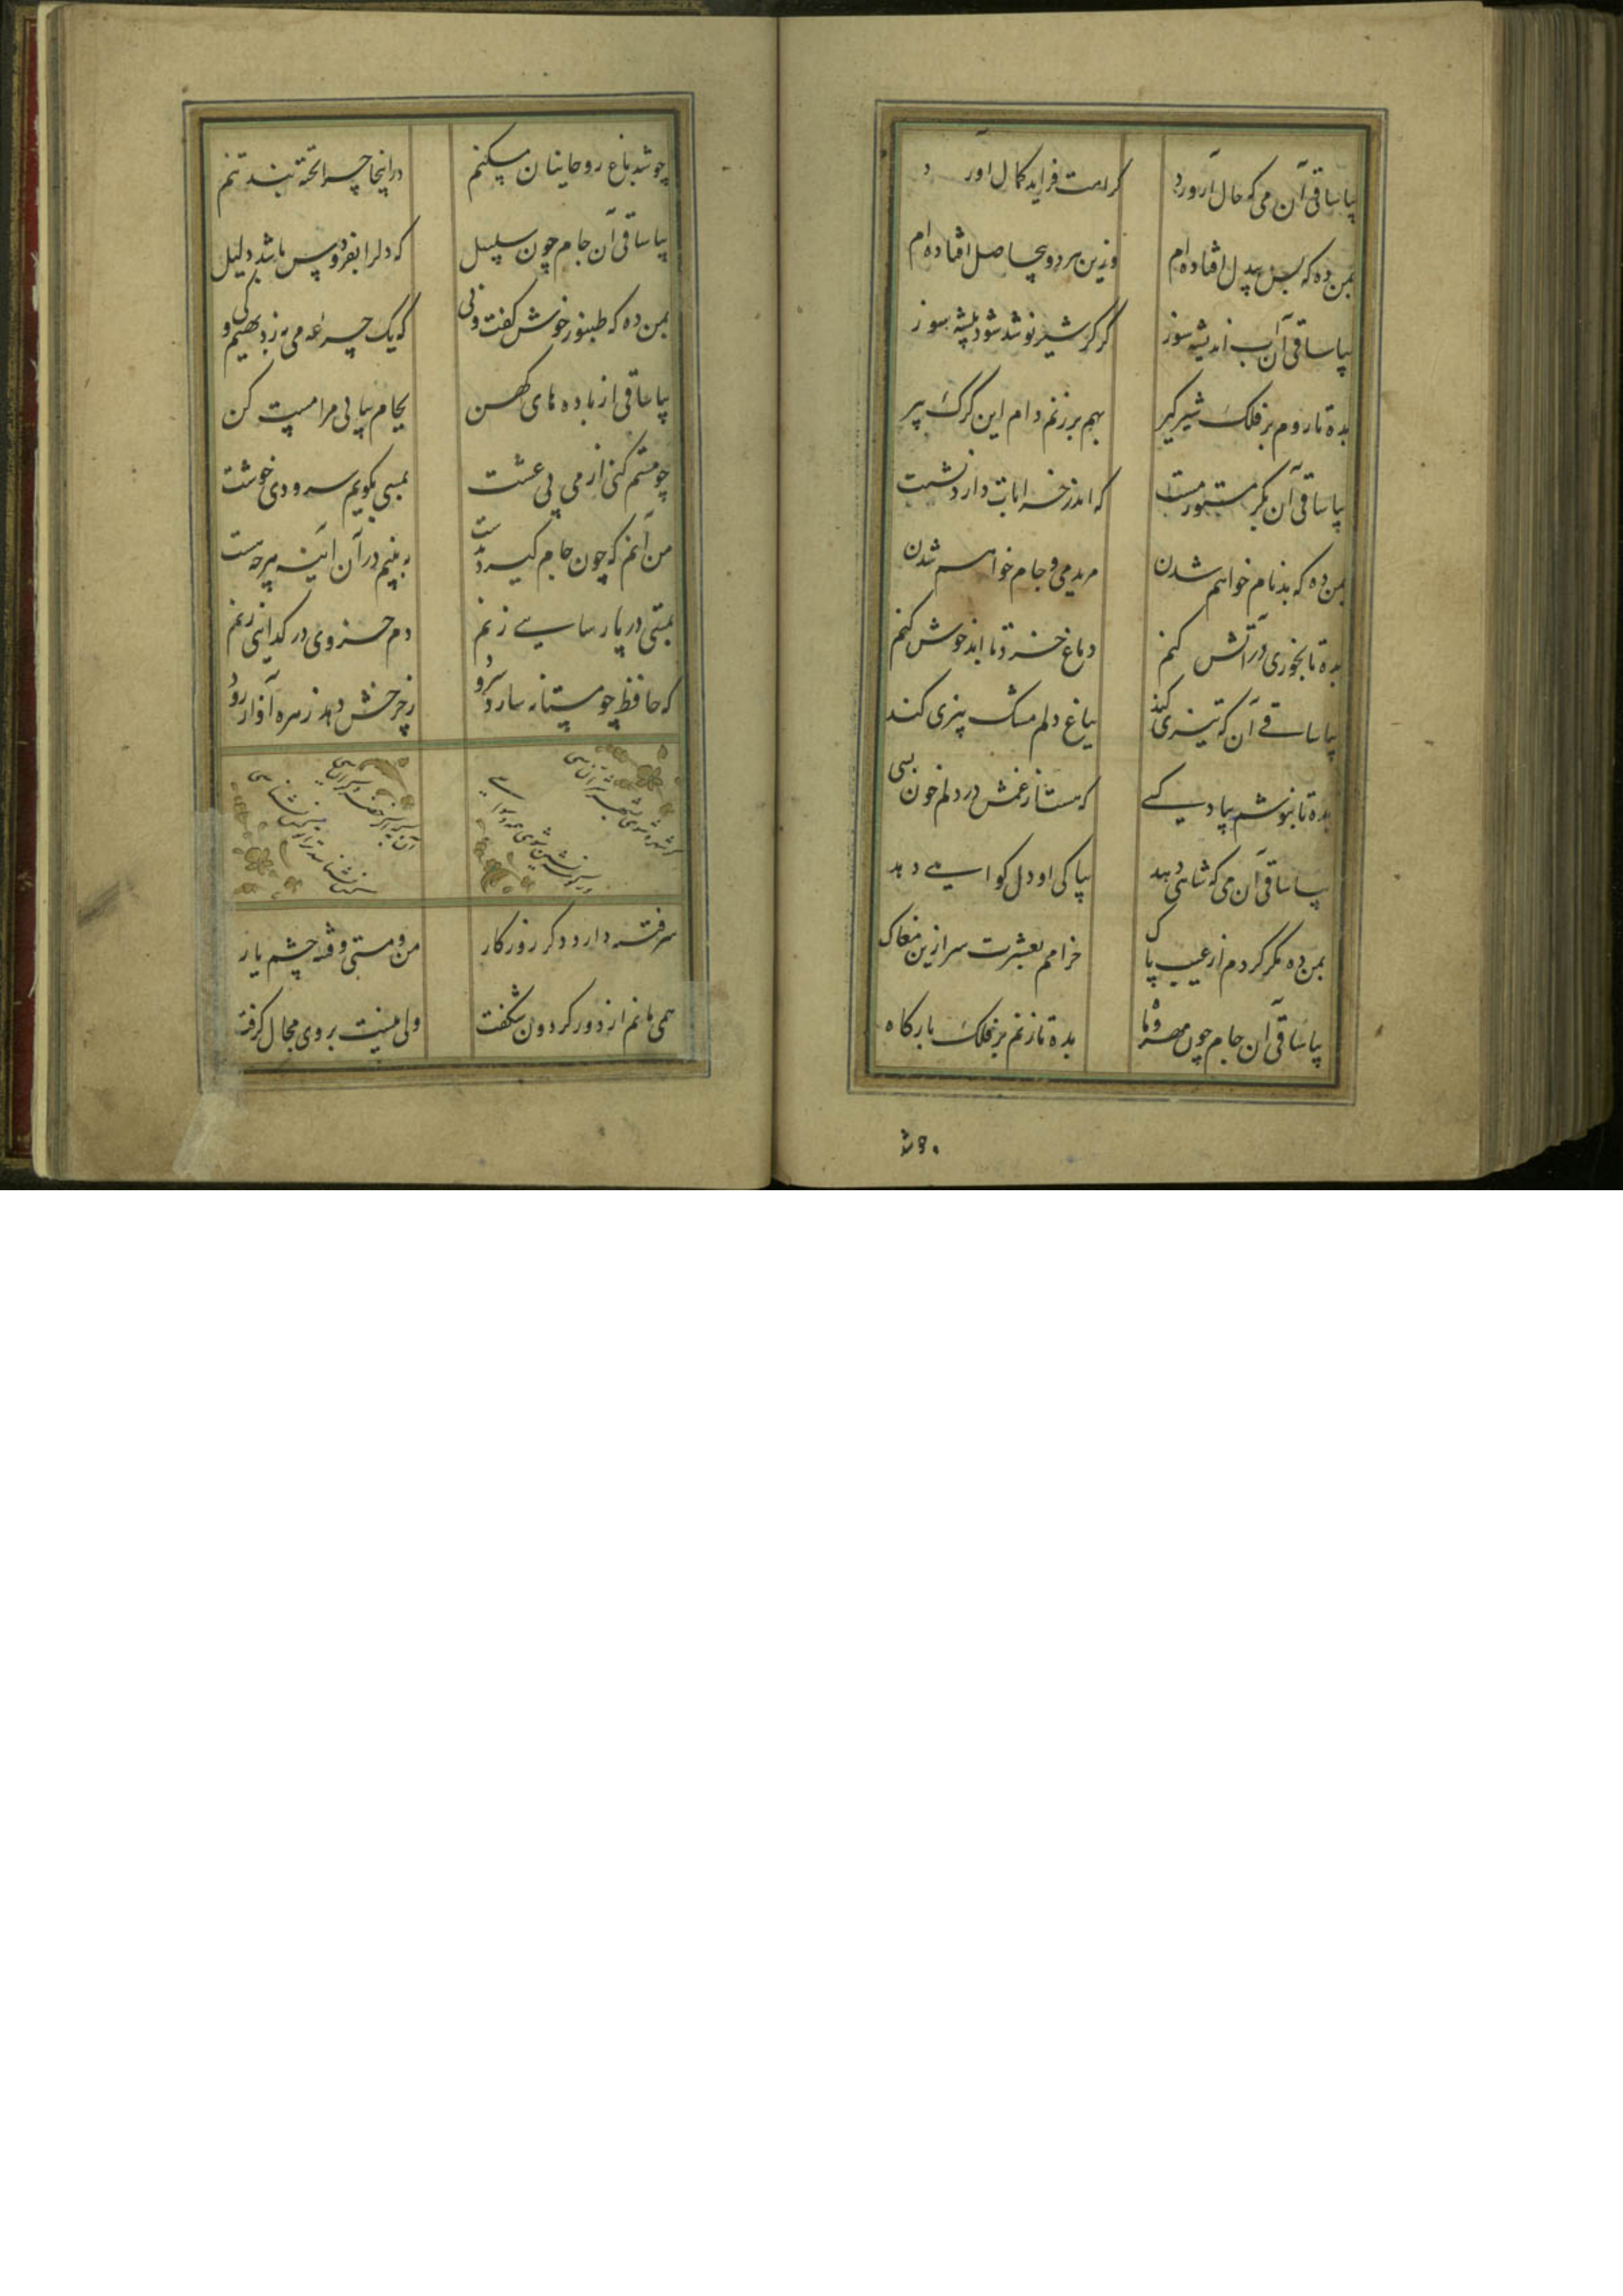 بیا ساقی آن می که حال آورد
کرامت فزاید کمال آورد
بمن ده که بس بیدل افتاده ام
وزین هر دو بیحاصل افتاده ام
بیا ساقی آن آب اندیشه سوز
که گر شیر نوشد شود بیشه سوز
بده تا روم بر فلک شیر گیر
بهم بر زنم دام این گرگ پیر
بیا ساقی آن بکر مستور مست
که اندر خرابات دارد نشست
بمن ده که بدنام خواهم شدن
مرید می و جام خواهم شدن
بده تا بخوری در آتش کنم
دماغ خرد تا ابد خوش کنم
بیا ساقی آن که تیزی کند
بباغ دلم مشک بیزی کند
بده تا بنوشم بیاد کسی
که هست از غمش در دلم خون بسی
بیا ساقی آن می که شاهی دهد
بپاکی او دل گواهی دهد
بمن ده مگر گردم از عیب پاک
خرامم بعشرت سر ازین مغاک
بیا ساقی آن جام چون مهر و ماه
بده تا زنم بر فلک بارگاه
چو شد باغ روحانیان مسکنم
در اینجا چرا تخته بند تنم
بیا ساقی آن جام چون سلسبیل
که دل را بفردوس باشد دلیل
بمن ده که طنبور خوش گفت و نی
که یک جرعه می به ز دیهیم کی
بیا ساقی از باده های کهن
بجام پیاپی مرا مست کن
چو مستم کنی از می بی غشت
بمستی بگویم سرودی خوشت
من آنم که چون جام گیرد بدست
به بینم در آن آینه هر چه هست
بمستی در پارسایی زنم
دم خسروی در گدایی زنم
که حافظ چو مستانه سازد سرود
ز چرخش دهد زهره آواز رود
گر شهره شوی بشهر شر الناسی
ور گوشه نشین شوی همه وسواسی
آن به که اگر خضر و گر الیاسی
کس نشناسد ترا تو کس نشناسی
سر فتنه دارد دگر روزگار
من و مستی و فتنه چشم یار
همی مانم از دور گردون شگفت
ولی نیست بر وی مجال گرفت